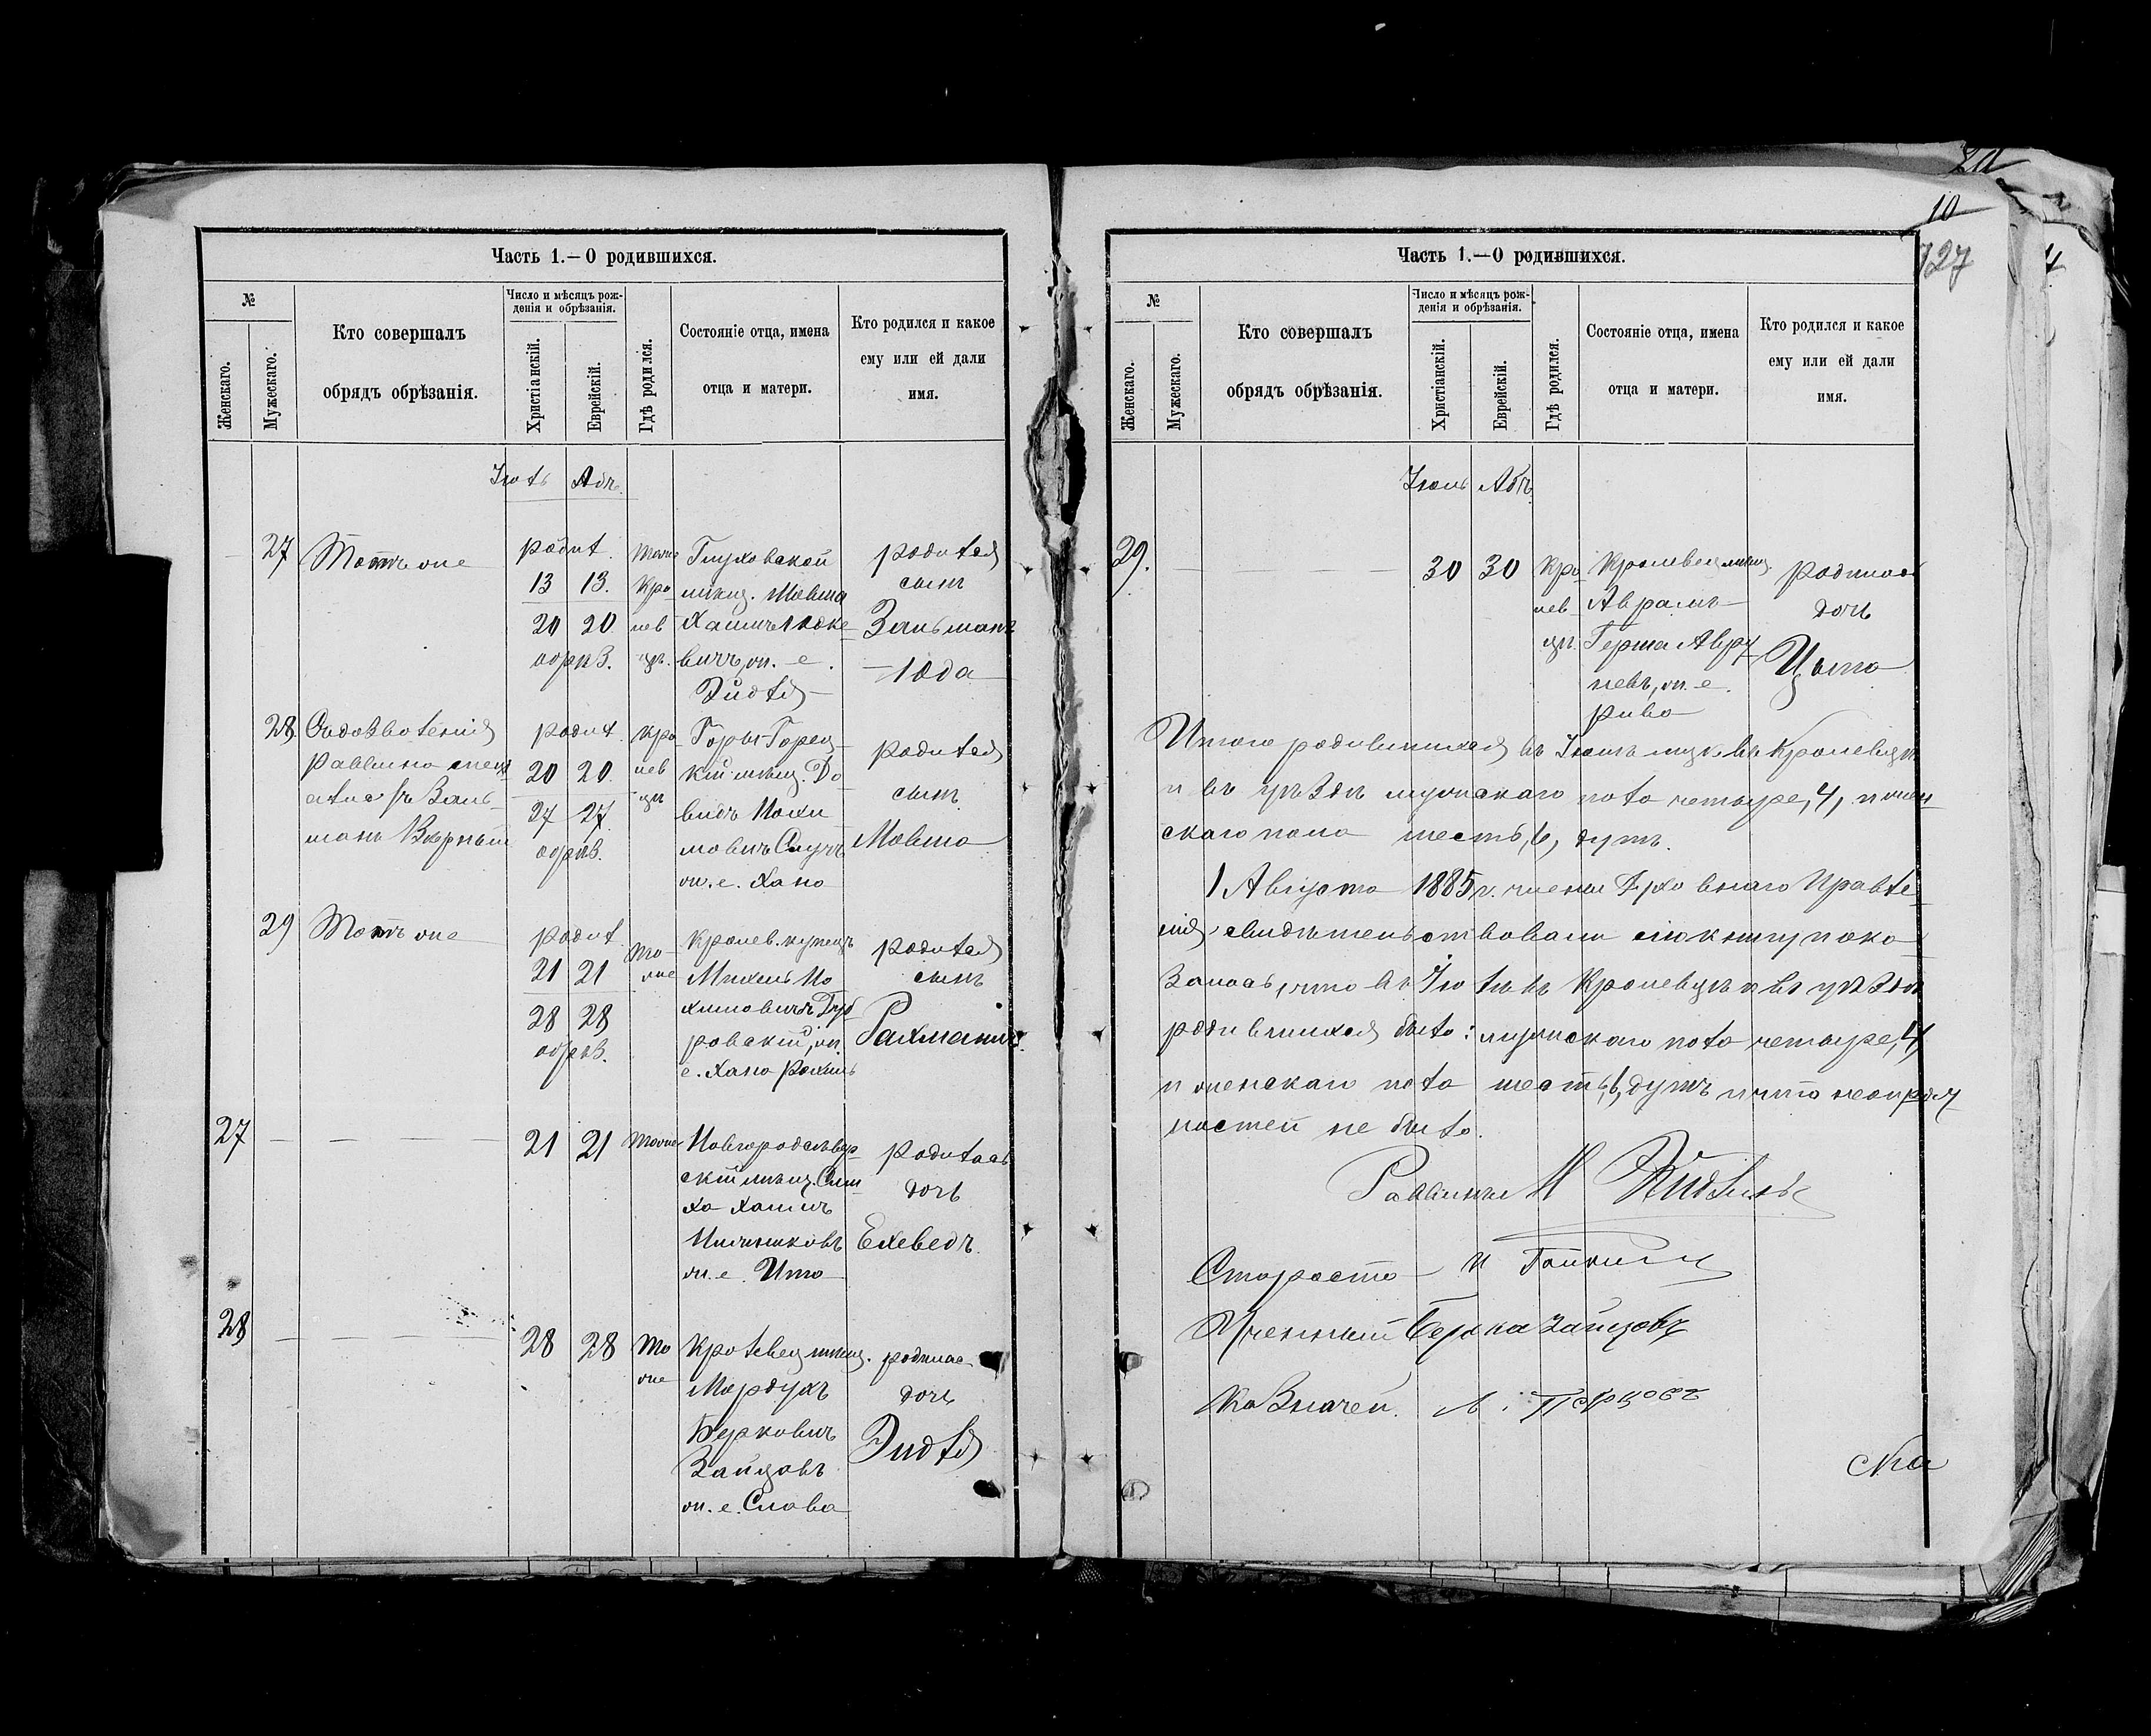 Часть 1.—О родившихся.
№
Женскаго.
Мужескаго.
Кто совершалъ
обрядъ обрѣзанія.
Число и мѣсяцъ рож-
денія и обрѣзанія.
Христіанскій.
Еврейскій.
Гдѣ родился.
Состояніе отца, имена
отца и матери.
Кто родился и какое
ему или ей дали
имя.
Іюль Абъ.
27
Тотъ же
родил.
13 13.
20 20
обрѣз.
Тоже
Кро
лев
цѣ.
Глуховской
мѣщ. Мовша
Хаимъ
вичъ, ж. е.
Эйдля
родился
сынъ
Залманъ
Юда
28.
Съ дозволенія
раввина
Заль
манъ
родил.
20 20.
27 27.
обрѣз.
Кро
лев
цѣ
Горы-Горец
кій мѣщ. До
видъ Нохи
мовичъ Случ
ж. е. Хана
родился
сынъ
Мовша
29
Тотъ же
родил.
21 21
28 28
обрѣз.
То
же
Кролев. купецъ
Михель Но
химовичъ Дуб
ровскій, ж.
е. Хана Рохль
родился
сынъ
Рахміель
27
21 21
Тоже
Новгородсѣвер
скій мѣщ. Сим
ха Хаимъ
ж. е. Ита
родилась
дочь
Ехеведъ.
28
28 28
То
же
Кролевец мѣщ.
Мордухъ
Берковичъ
Зайцовъ
ж. е. Слава
родилас
дочь
Эйдля
10
127
Часть 1.—О родившихся.
№
Женскаго.
Мужескаго.
Кто совершалъ
обрядъ обрѣзанія.
Число и мѣсяцъ рож-
денія и обрѣзанія.
Христіанскій.
Еврейскій.
Гдѣ родился.
Состояніе отца, имена
отца и матери.
Кто родился и какое
ему или ей дали
имя.
Іюль Абъ.
29.
30 30
Кро
лев
цѣ.
Кролевец мѣщ.
Аврамъ
Герша Авру
невъ, ж. е.
Рива
родилас
дочь
Цыпа
Итого родившихся въ Іюлѣ м-цѣ въ Кролевцѣ
и въ уѣздѣ мужскаго пола четыре, 4, и жен
скаго пола шесть, 6, душъ.
1 Августа 1885 г. члены Духовнаго Правле
нія свидѣтельствовали сію книгу и ока
залось, что въ Іюлѣ въ Кролевцѣ и въ уѣздѣ
родившихся было: мужскаго пола четыре, 4,
и женскаго пола шесть, 6, душъ и что неправ
ностей не было.
Раввинъ М
Староста И
Ученный Берка Зайцовъ
Казначей. Л. Перцовъ